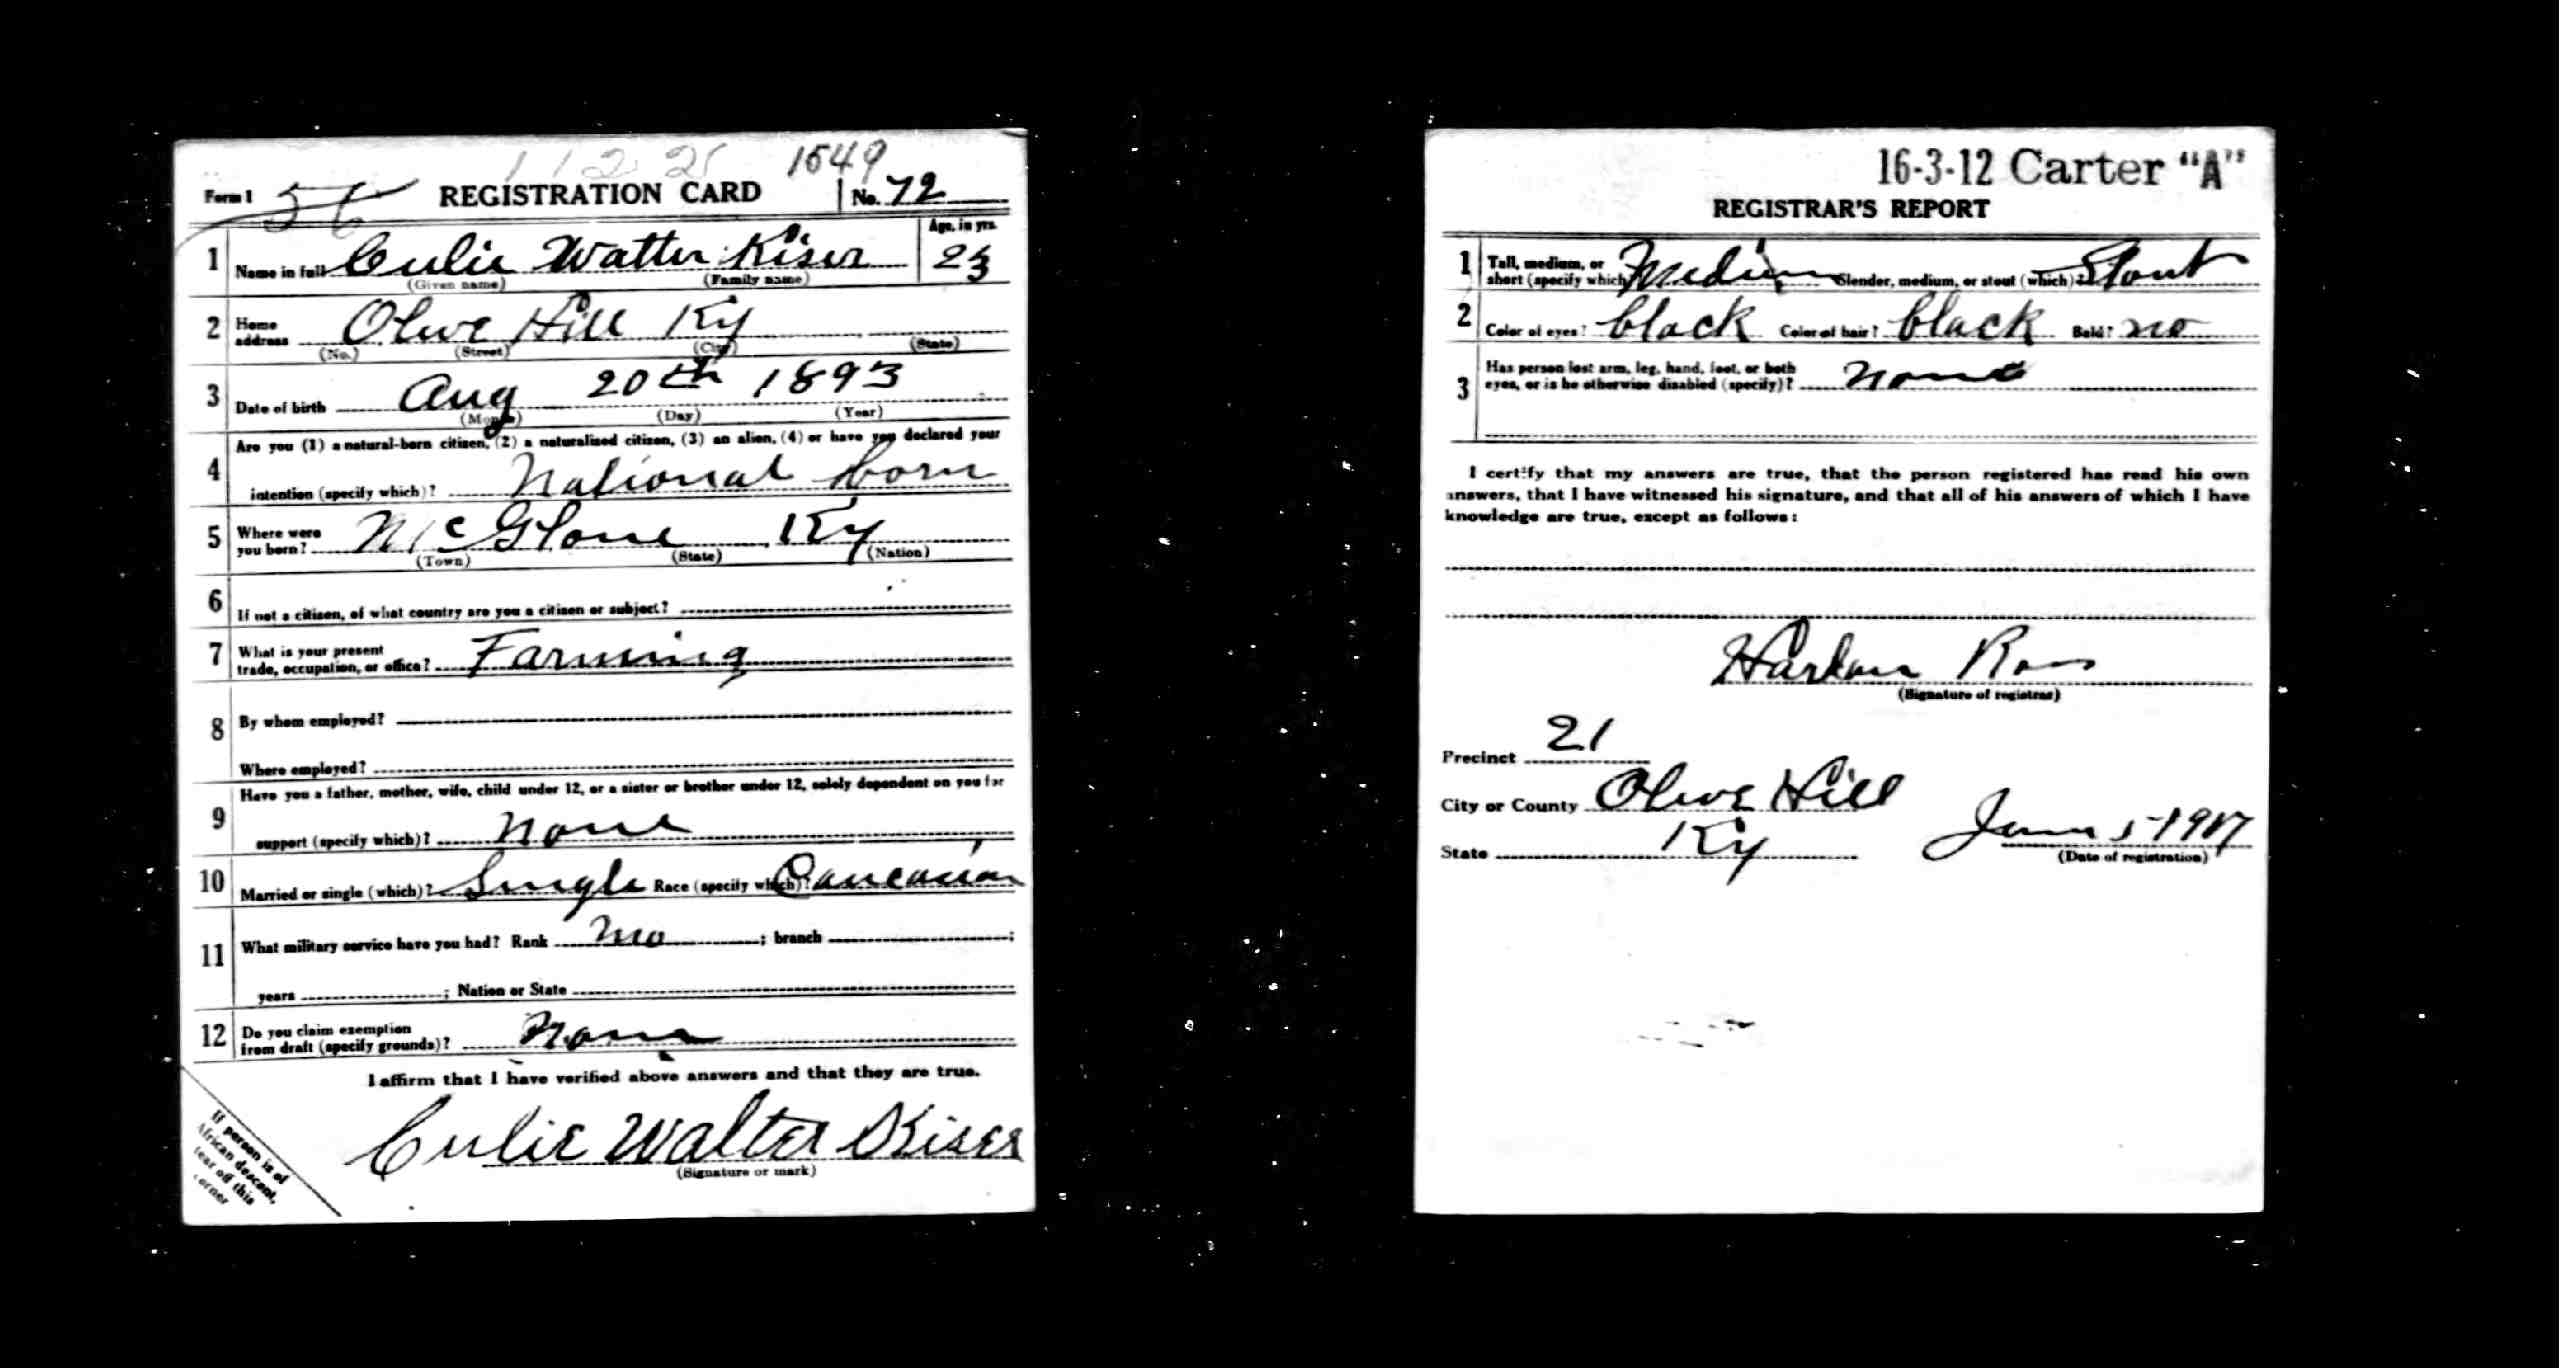 1 1 2 2 1549
Form 1 56 REGISTRATION CARD No. 72
1 Name in full Culie Walter Kiser Age, in yrs. 23
(Given name) (Family name)
2 Home address Olive Hill Ky
(No.) (Street) (City) (State)
3 Date of birth Aug 20th 1893
(Month) (Day) (Year)
4 Are you (1) a natural-born citizen, (2) a naturalized citizen, (3) an alien, (4) or have you declared your
intention (specify which)? National born
5 Where were you born? McGlone Ky
(Town) (State) (Nation)
6 If not a citizen, of what country are you a citizen or subject?
7 What is your present trade, occupation, or office? Farming
8 By whom employed?
Where employed?
9 Have you a father, mother, wife, child under 12, or a sister or brother under 12, solely dependent on you for
support (specify which)? None
10 Married or single (which)? Single Race (specify which)? Caucasian
11 What military service have you had? Rank No ; branch ;
years ; Nation or State
12 Do you claim exemption from draft (specify grounds)? None
I affirm that I have verified above answers and that they are true.
Culie Walter Kiser
(Signature or mark)
If person is of
African descent,
tear off this
corner
16-3-12 Carter "A"
REGISTRAR'S REPORT
1 Tall, medium, or short (specify which)? Medium Slender, medium, or stout (which)? Stout
2 Color of eyes? black Color of hair? black Bald? no
3 Has person lost arm, leg, hand, foot, or both
eyes, or is he otherwise disabled (specify)? None
I certify that my answers are true, that the person registered has read his own
answers, that I have witnessed his signature, and that all of his answers of which I have
knowledge are true, except as follows:
Harlan Ross
(Signature of registrar)
Precinct 21
City or County Olive Hill
State Ky June 5-1917
(Date of registration)